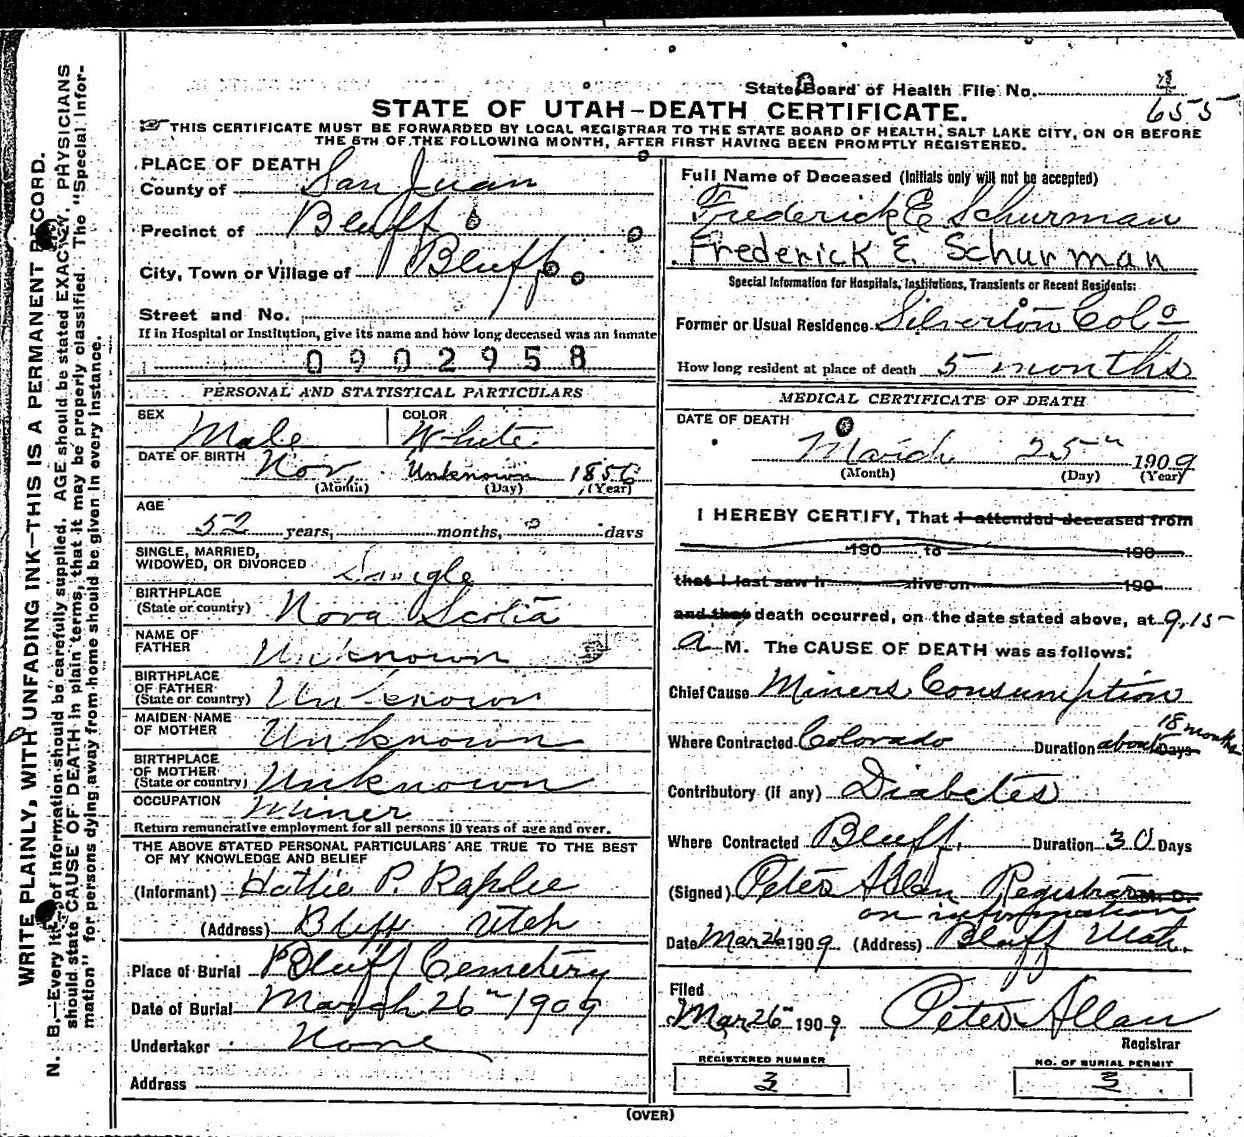 State Board of Health File No. 4
655
STATE OF UTAH-DEATH CERTIFICATE.
THIS CERTIFICATE MUST BE FORWARDED BY LOCAL REGISTRAR TO THE STATE BOARD OF HEALTH, SALT LAKE CITY, ON OR BEFORE
THE 5TH OF THE FOLLOWING MONTH, AFTER FIRST HAVING BEEN PROMPTLY REGISTERED.
WRITE PLAINLY, WITH UNFADING INK—THIS IS A PERMANENT RECORD.
N. B.—Every item of information should be carefully supplied. AGE should be stated EXACTLY. PHYSICIANS
should state CAUSE OF DEATH in plain terms, that it may be properly classified. The "Special Infor-
mation" for persons dying away from home should be given in every instance.
PLACE OF DEATH
County of San Juan
Precinct of Bluff
City, Town or Village of Bluff
Street and No.
If in Hospital or Institution, give its name and how long deceased was an inmate
0902958
PERSONAL AND STATISTICAL PARTICULARS
SEX Male COLOR White
DATE OF BIRTH Nov Unknown 1856
(Month) (Day) (Year)
AGE
52 years, months, ? days
SINGLE, MARRIED,
WIDOWED, OR DIVORCED Single
BIRTHPLACE
(State or country) Nova Scotia
NAME OF
FATHER Unknown
BIRTHPLACE
OF FATHER
(State or country) Unknown
MAIDEN NAME
OF MOTHER Unknown
BIRTHPLACE
OF MOTHER
(State or country) Unknown
OCCUPATION Miner
Return remunerative employment for all persons 10 years of age and over.
THE ABOVE STATED PERSONAL PARTICULARS ARE TRUE TO THE BEST
OF MY KNOWLEDGE AND BELIEF
(Informant) Hattie P. Raplee
(Address) Bluff Utah
Place of Burial Bluff Cemetery
Date of Burial March 26" 1909
Undertaker None
Address
Full Name of Deceased (Initials only will not be accepted)
Frederick E Schurman
Frederick E. Schurman
Special Information for Hospitals, Institutions, Transients or Recent Residents:
Former or Usual Residence Silverton Colo
How long resident at place of death 5 months
MEDICAL CERTIFICATE OF DEATH
DATE OF DEATH
March 25th 1909
(Month) (Day) (Year)
I HEREBY CERTIFY, That I attended deceased from
190 to 190
that I last saw h alive on 190
and that death occurred, on the date stated above, at 9.15
a M. The CAUSE OF DEATH was as follows:
Chief Cause Miners Consumption
Where Contracted Colorado Duration about 18 months Days
Contributory (if any) Diabetes
Where Contracted Bluff. Duration 30 Days
(Signed) Peter Allan Registrar M. D.
on information
Date Mar 26 1909 (Address) Bluff Utah.
Filed
Mar 26" 1909 Peter Allan
Registrar
REGISTERED NUMBER NO. OF BURIAL PERMIT
3 3
(OVER)